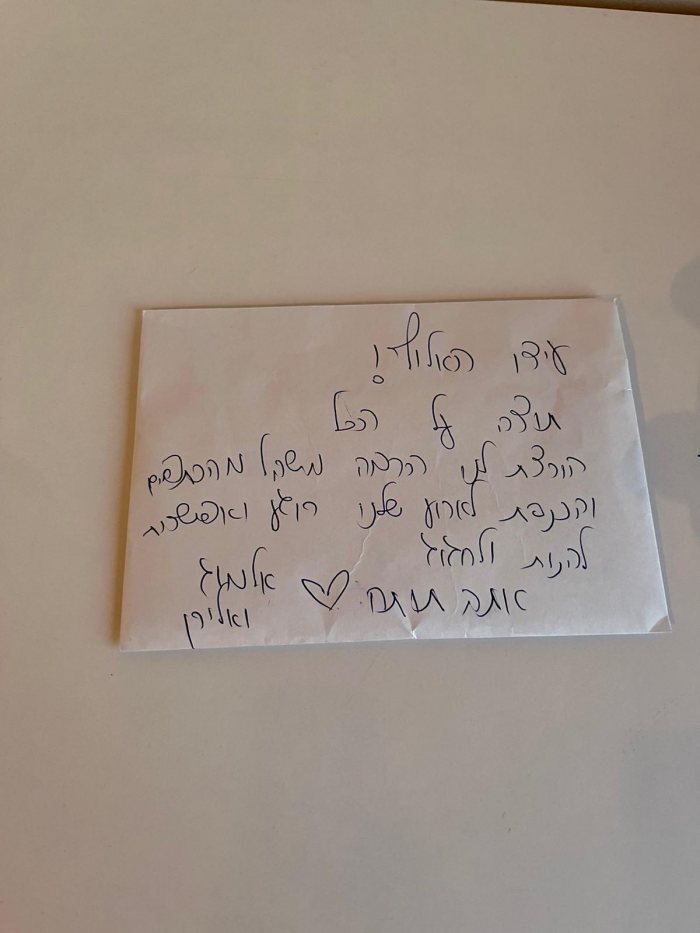 עידו האלוף!
תודה על הכל
הורדת לנו הרבה משקל מהכתפיים
והכנסת לארוע שלנו רוגע ואפשרות
להנות ולחגוג
אתה תותח ♡ אלמגג
ואלירן